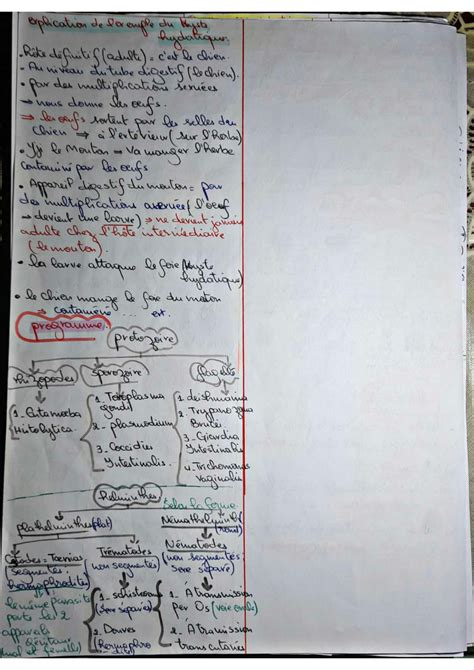 explication de l'exemple du Kyste
hydatique:
• Hôte définitif (adulte) = c'est le chien.
• Au niveau du tube digestif (le chien).
• par des multiplications sexuées
→ nous donne les œufs.
⇒ les œufs sortent par les selles du
chien ⇒ à l'extérieur (sur l'herbe)
• Le Mouton → va manger l'herbe
contaminé par les œufs
• Appareil digestif du mouton = par
des multiplications (l'œuf
→ devient une larve) ⇒ ne devient jamais
adulte chez l'hôte intermédiaire
(le mouton).
• la larve attaque le foie (Kyste
hydatique)
• le chien mange le foie du mouton
⇒ contaminé ... est.
programme:
protozoire
rhizopodes
sporozoire
flagellé
1. Entamoeba
Histolytica.
1. Toxoplasma
gondii
2. plasmodium
3. Coccidies
Intestinalis.
1. leishmania
2. Trypanozoma
Brucei
3. Giardia
Intestinalis
4. Trichomonas
Vaginalis
Helminthes
Selon la forme
plathelminthes (plat)
Némathelminthes
(rond)
Cestodes = Taenias
segmentés:
hermophrodite
le même parasite
porte les 2
appareils
génitaux
mal et femelle)
Trématodes
(non segmentés)
1. schistosoma
(sexe séparés)
2. Douves
(hermophro
dite)
Nématodes
(non segmentés:
sexe séparé)
1. À transmission
per Os (voie orale)
2. À transmission
transcutanée